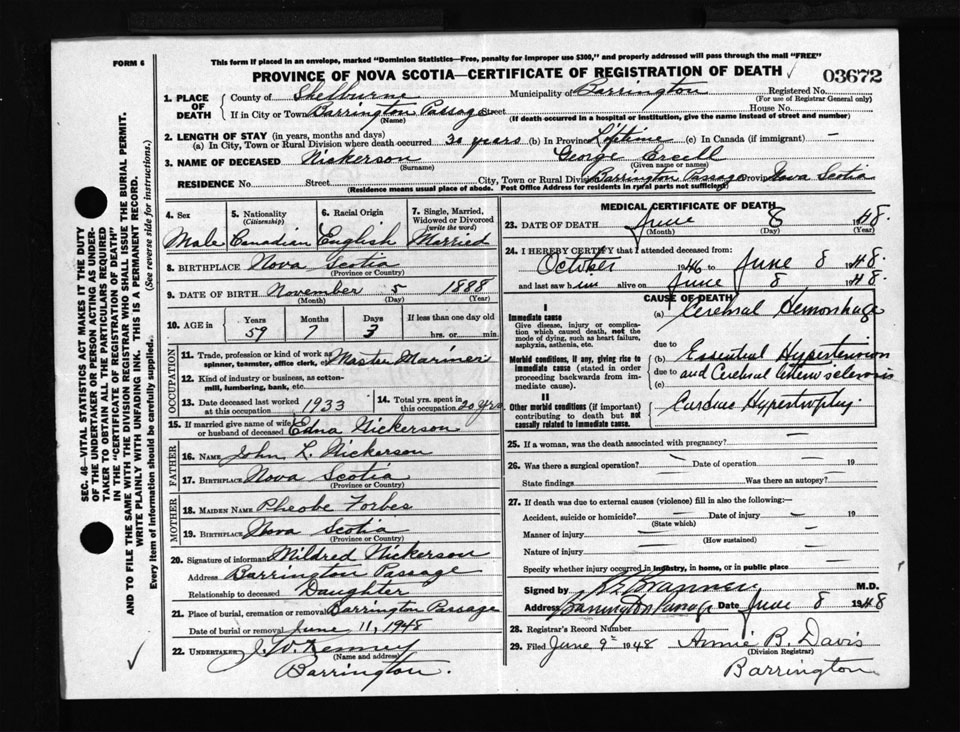 FORM 6
This form if placed in an envelope, marked "Dominion Statistics—Free, penalty for improper use $300," and properly addressed will pass through the mail "FREE"
PROVINCE OF NOVA SCOTIA—CERTIFICATE OF REGISTRATION OF DEATH ✓ 03672
1. PLACE OF DEATH
County of Shelburne Municipality of Barrington Registered No.
(For use of Registrar General only)
If in City or Town Barrington Passage Street House No.
(Name) (If death occurred in a hospital or institution, give the name instead of street and number)
2. LENGTH OF STAY (in years, months and days)
(a) In City, Town or Rural Division where death occurred 30 years (b) In Province Lifetime (c) In Canada (if immigrant) —
3. NAME OF DECEASED Nickerson George Ercell
(Surname) (Given name or names)
RESIDENCE No. Street City, Town or Rural Division Barrington Passage Province Nova Scotia
(Residence means usual place of abode. Post Office Address for residents in rural parts not sufficient)
4. Sex Male
5. Nationality (Citizenship) Canadian
6. Racial Origin English
7. Single, Married, Widowed or Divorced (write the word) Married
8. BIRTHPLACE Nova Scotia
(Province or Country)
9. DATE OF BIRTH November 5 1888
(Month) (Day) (Year)
10. AGE in Years 59 Months 7 Days 3 If less than one day old hrs. or min.
OCCUPATION
11. Trade, profession or kind of work as spinner, teamster, office clerk, etc. Master Mariner
12. Kind of industry or business, as cotton-mill, lumbering, bank, etc.
13. Date deceased last worked at this occupation 1933
14. Total yrs. spent in this occupation 20 yrs
15. If married give name of wife or husband of deceased Edna Nickerson
FATHER
16. NAME John L. Nickerson
17. BIRTHPLACE Nova Scotia
(Province or Country)
MOTHER
18. MAIDEN NAME Pheobe Forbes
19. BIRTHPLACE Nova Scotia
(Province or Country)
20. Signature of informant Mildred Nickerson
Address Barrington Passage
Relationship to deceased Daughter
21. Place of burial, cremation or removal Barrington Passage
Date of burial or removal June 11, 1948
22. UNDERTAKER J. W. Kenney
(Name and address)
Barrington.
MEDICAL CERTIFICATE OF DEATH
23. DATE OF DEATH June 8 1948.
(Month) (Day) (Year)
24. I HEREBY CERTIFY that I attended deceased from:
October 1946 to June 8 1948.
and last saw him alive on June 8 1948.
CAUSE OF DEATH
I
Immediate cause
Give disease, injury or complication which caused death, not the mode of dying, such as heart failure, asphyxia, asthenia, etc.
(a) Cerebral Hemorrhage
due to
Morbid conditions, if any, giving rise to immediate cause (stated in order proceeding backwards from immediate cause).
(b) Essential Hypertension
due to and Cerebral Arteriosclerosis
(c)
II
Other morbid conditions (if important) contributing to death but not causally related to immediate cause.
Cardiac Hypertrophy
25. If a woman, was the death associated with pregnancy? —
26. Was there a surgical operation? — Date of operation — 19
State findings Was there an autopsy?
27. If death was due to external causes (violence) fill in also the following:—
Accident, suicide or homicide? — Date of injury — 19
(State which)
Manner of injury —
(How sustained)
Nature of injury —
Specify whether injury occurred in industry, in home, or in public place
Signed by M.D.
Address Barrington Passage Date June 8 1948
28. Registrar's Record Number
29. Filed June 9th 1948 Annie B. Davis
(Division Registrar)
Barrington
SEC. 46—VITAL STATISTICS ACT MAKES IT THE DUTY
OF THE UNDERTAKER OR PERSON ACTING AS UNDER-
TAKER TO OBTAIN ALL THE PARTICULARS REQUIRED
IN THE "CERTIFICATE OF REGISTRATION OF DEATH"
AND TO FILE THE SAME WITH THE DIVISION REGISTRAR WHO SHALL ISSUE THE BURIAL PERMIT.
WRITE PLAINLY WITH UNFADING INK. THIS IS A PERMANENT RECORD.
Every item of information should be carefully supplied. (See reverse side for instructions.)
✓